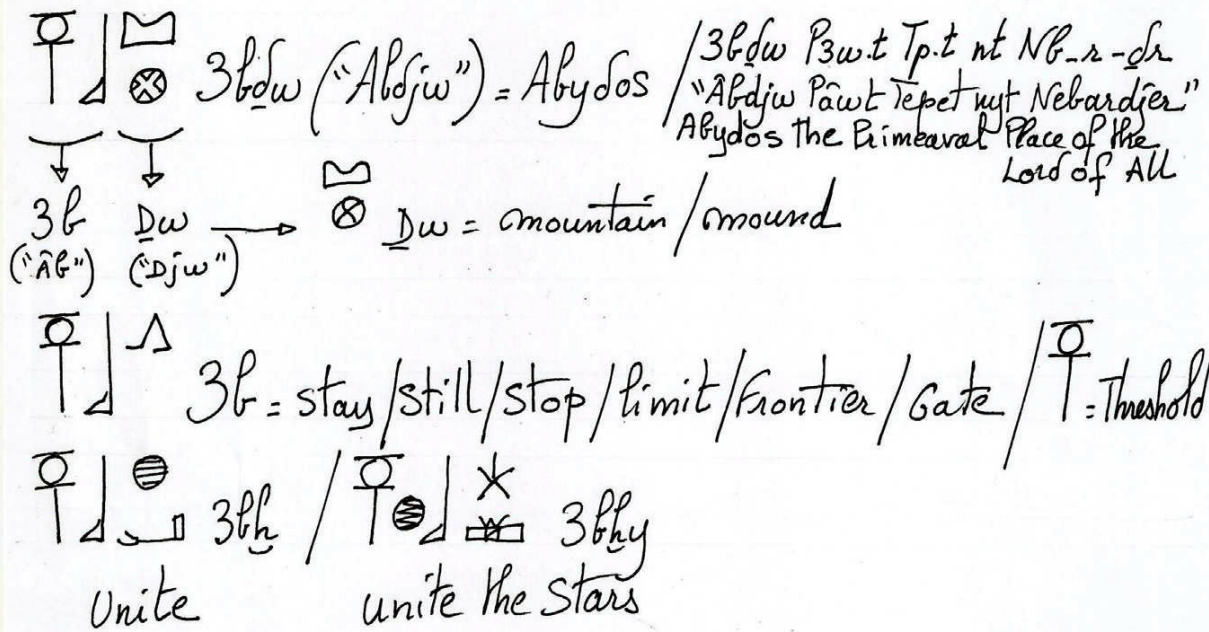 3bḏw ("Abdjw") = Abydos / 3bḏw P3w.t Tp.t nt Nb-r-ḏr
"Âbdjw Pâwt Tepet nyt Nebardjer"
Abydos the Primeaval Place of the
Lord of All
3b Ḏw → Ḏw = mountain / mound
("Âb") ("Djw")
3b = stay / still / stop / limit / Frontier / Gate / = Threshold
3bẖ / 3bẖy
Unite unite the Stars